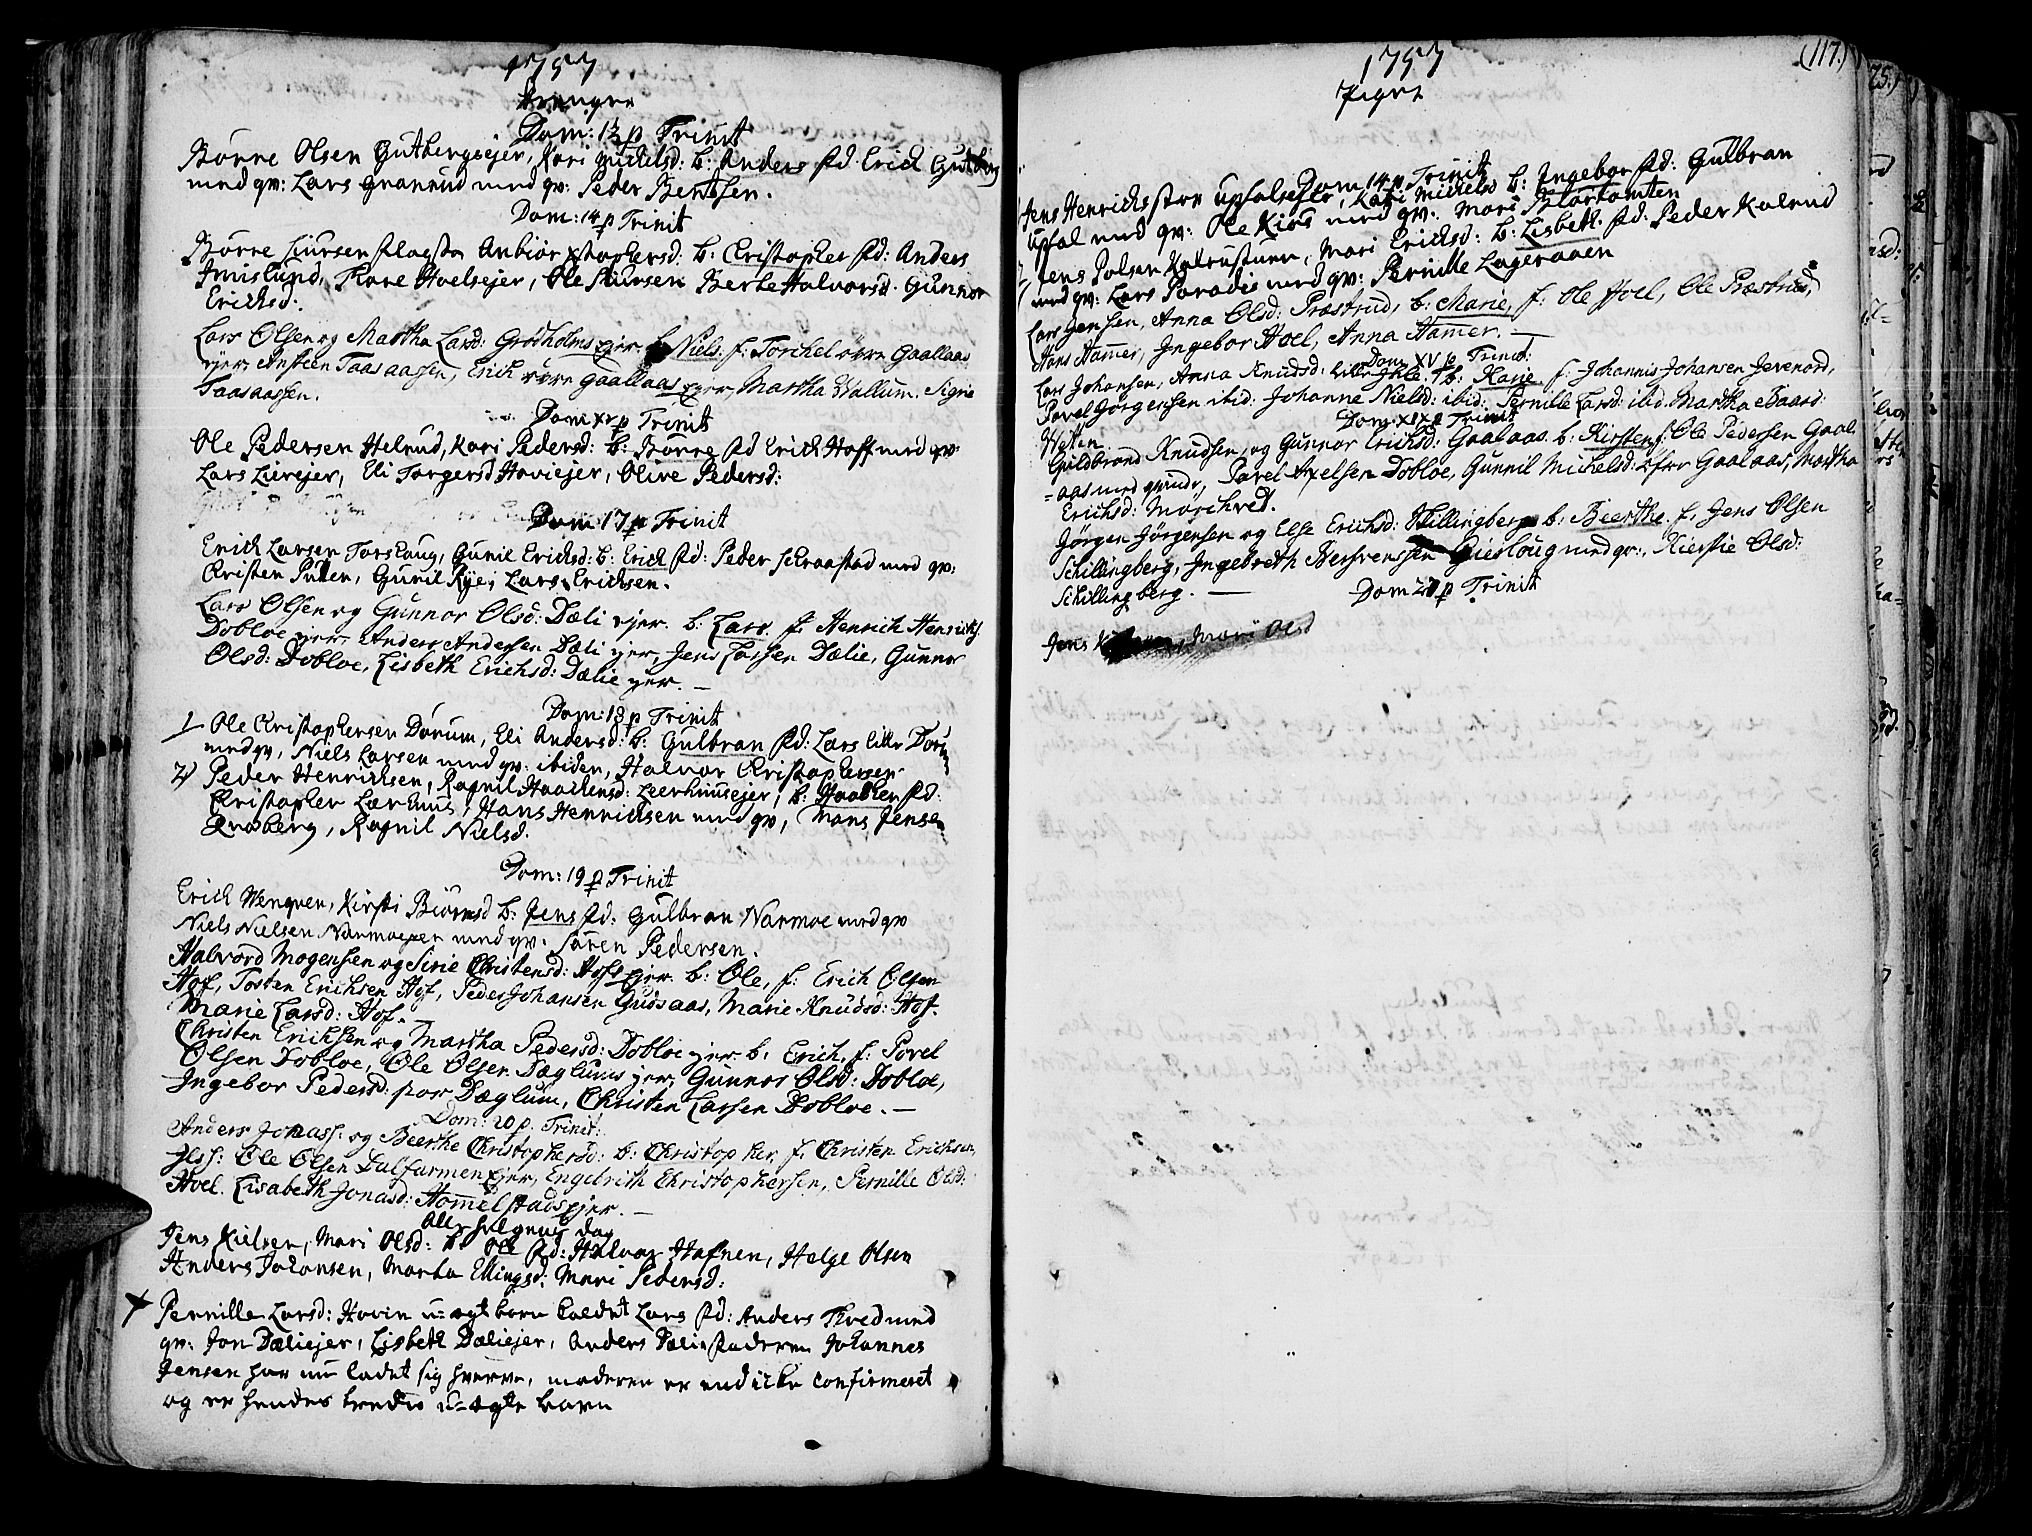 1757
Drenge
Dom: 13 p Trinit
Børre Olsen Gutbergsejer, Kari b: Anders fad Erick Gutberg
med qv: Lars Grannrud med qv: Peder Bentsen.
Dom: 14 p Trinit
Børre Siursen Anbiør Xstophersd: b: Christopher fad: Anders
Imislund, Thore Hoelsejer, Ole Siursen Berte Halvorsd: Gunnor
Ericksd:
Lars Olsen og Martha Larsd: Grøtholms ejer b. Niels. f: Torchel øvre Gaallaas
ejer. Ansteen Taasaassen, Erich øvre Gaallaas ejer, Martha Vallum. Sigrie
Taasaassen.
Dom XV p Trinit
Ole Pedersen Helrud, Kari Pedersd: b: Børre fad Erick Hoff med qv.
Lars Lierejer, Eli Torgersd Hoviejer, Olive Pedersd:
Dom 17 p Trinit
Erick Larsen Torshaug, Gunil Ericksd: b: Erick fad: Peder Schraastad med qv:
Cristen Putten, Gunil Rye, Lars Ericksen.
Lars Olsen og Gunnor Olsd: Dæli ejer. b: Lars. f. Henrich Henrichs.
Dobloe ejer. Anders Andersen Dæli ejer, Jens Larsen Dælie, Gunnor
Olsd: Dobloe, Lisbeth Erichsd: Dælie ejer. —
Dom: 18 p Trinit
1 Ole Christophersen Dørum, Eli Andersd: b: Gulbran fad: Lars lille Dørum
med qv, Niels Larsen med qv: ibiden, Halvor Christophersen
2) Peder Henricksen, Ragnil Haackensd: Leerhuusejer; b: Haaken fad:
Christopher Lærhuus, Hans Henricksen med qv, Mons Jensen
Qvaberg, Ragnil Nielsd.
Dom: 19 p Trinit
Erick Wenqven, Kirsti Biørnsd b: Jens fad: Gulbran Narmoe med qv
Niels Nielsen Narmoejer med qv. Søren Pedersen.
Halvord Mogensen og Sirie Christensd: Hofs ejer. b: Ole, f: Erich Olsen
Hof, Tosten Erichsen Hof, Peder Johansen Gudsaas, Marie Knudsd: Hof.
Marie Larsd: Hof. —
Christen Erichsen og Martha Pedersd: Dobloe ejer b: Erich, f: Povel
Olsen Dobloe, Ole Olsen Dæglums ejer, Gunnor Olsd: Dobloe,
Ingebor Pedersd: por Dæglum, Christen Larsen Dobloe. —
Dom: 20 p. Trinit:
Anders Jonass: og Beerthe Christophersd: b: Christopher f: Christen Erichsen,
Ole Olsen Dulfurmen Ejer, Engebrith Christophersen, Pernille Olsd:
Hoel. Lisabeth Jonasd: Hommelstads ejer. —
Alle helgens dag
Jens Kielsen, Mari Olsd: b: Ole fad: Halvor Hafnen, Helge Olsen
Anders Johansen, Marta Ellingsd: Mari Pedersd:
Pernille Larsd: Hovin u-ægte barn kaldet Lars fad: Anders med
qv: Jon Dæliejer, Lisbeth Dæliejer, Anders Dæli faderen Johannes
Jensen har nu ladet sig hverve, moderen er end icke confirmeret
og er hendes tredie u-ægte barn
1757
(117.)
Piger
Dom 14 p Trinit
Jens Henrichs søn upsalseje, Kari Mickelsd b: Ingebor fad: Gulbran
Upsal med qv: Ole Kiøs med qv: Mari Klørtomten
Jens Polsen Kalrustuen, Mari Ericksd: b: Lisbeth fad: Peder Kalrud
med qv: Lars Paradis med qv: Pernille Lageraaen
Lars Jensen, Anna Olsd: Præstrud, b: Marie, f: Ole Hoel, Ole Præstrud,
Hans Hamer, Ingebor Hoel, Anna Hamer. —
Dom XV p Trinit:
Lars Johansen, Anna Knudsd: b: Karie f: Johannis Johansen Jevenord,
Povel Jørgensen ibid: Johanne Nielsd: ibid: Pernille Larsd: ibid. Martha Baard:
Weten
Dom XIX p Trinit
Guldbrand Knudsen, og Gunnor Erichsd: Gaalaas. b: Kirsten f: Ole Pedersen Gaal
=aas med qvinde, Povel Axelsen Dobloe, Gunnil Michelsd: øfre Gaalaas, Martha
Erichsd: Mørchved.
Jørgen Jørgensen og Else Erichsd: Skillingberg b: Beerthe. f. Jens Olsen
Schillingberg, Ingebreth Giesloug med qv:, Kierstie Olsd:
Schillingberg. —
Dom 21 p Trinit
Jens Mari Olsd